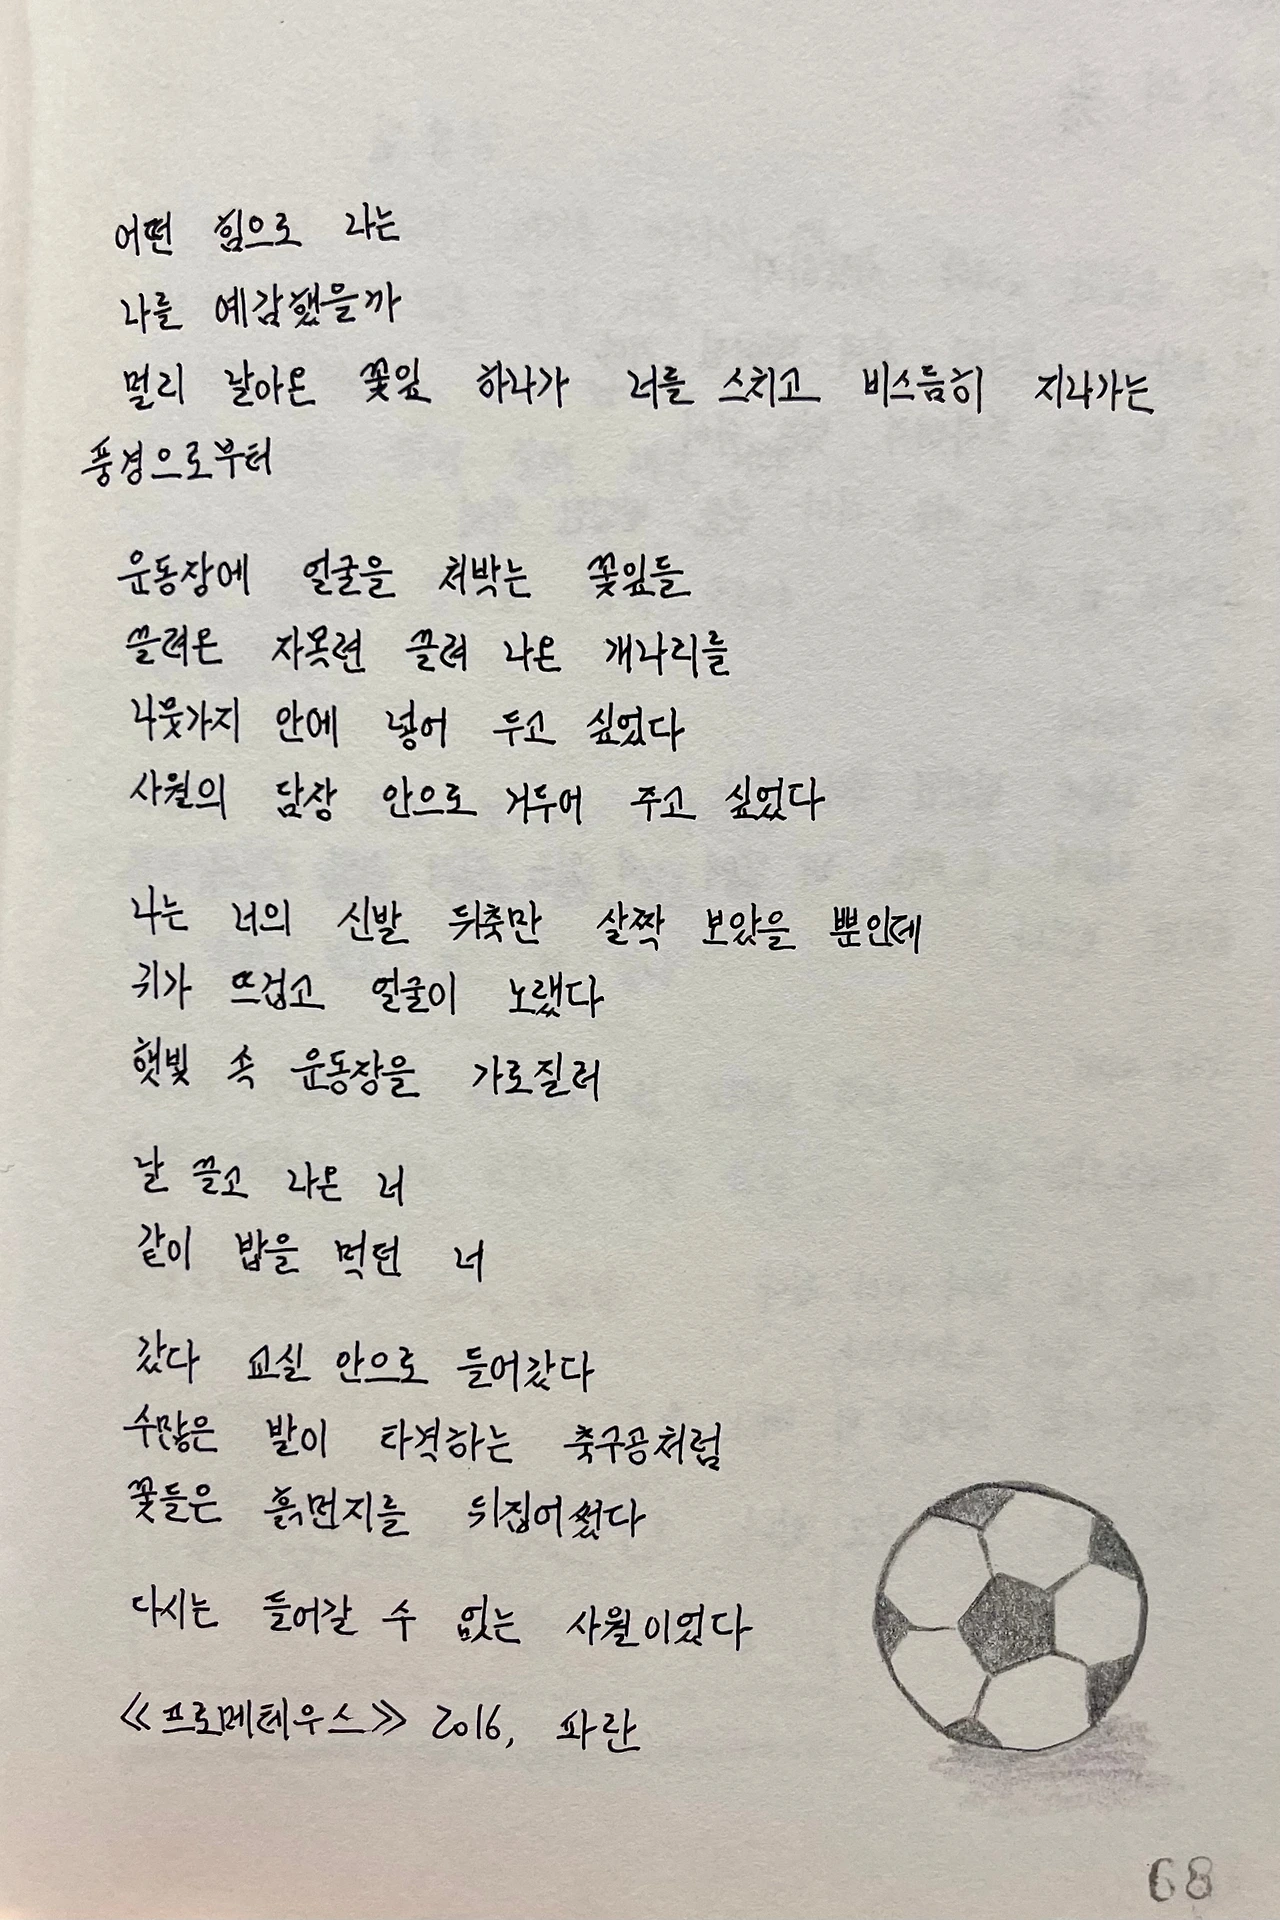 어떤 힘으로 나는
나를 예감했을까
멀리 날아온 꽃잎 하나가 너를 스치고 비스듬히 지나가는
풍경으로부터
운동장에 얼굴을 처박는 꽃잎들
끌려온 자목련 끌려 나온 개나리를
나뭇가지 안에 넣어 두고 싶었다
사월의 담장 안으로 거두어 주고 싶었다
나는 너의 신발 뒤축만 살짝 보았을 뿐인데
귀가 뜨겁고 얼굴이 노랬다
햇빛 속 운동장을 가로질러
날 끌고 나온 너
같이 밥을 먹던 너
갔다 교실 안으로 들어갔다
수많은 발이 타격하는 축구공처럼
꽃들은 흙먼지를 뒤집어썼다
다시는 들어갈 수 없는 사월이었다
《프로메테우스》 2016, 파란
68